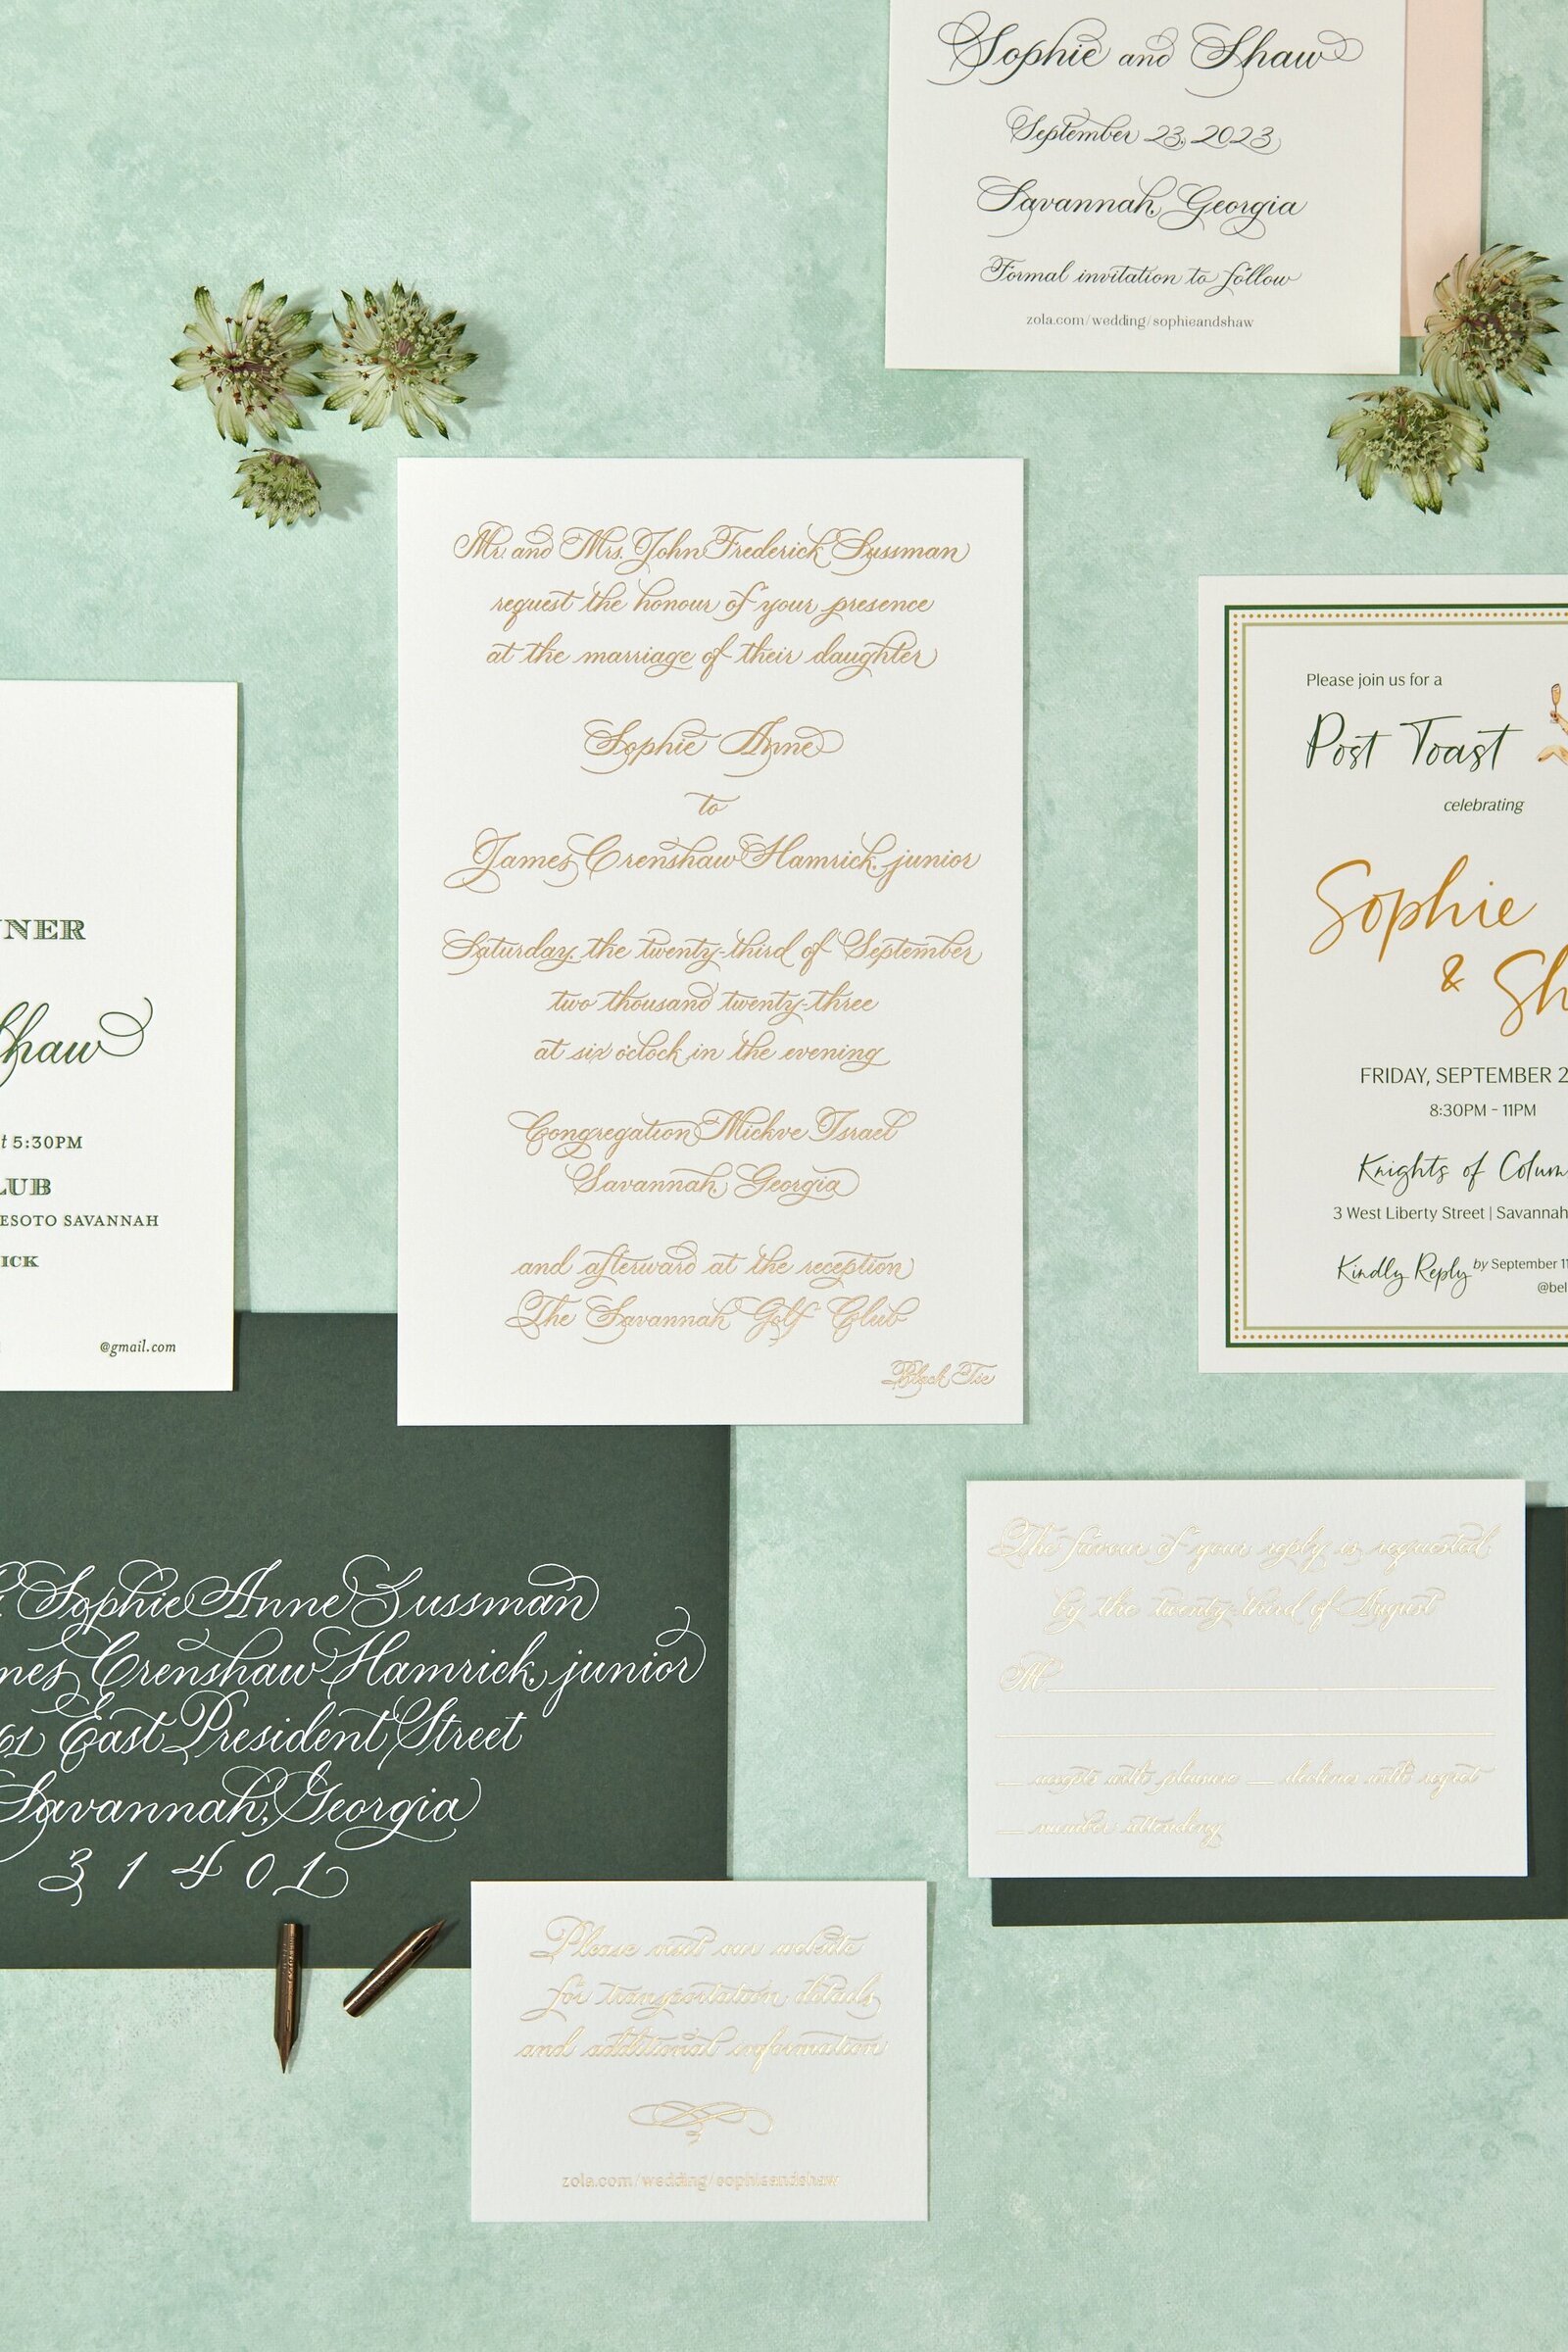 Sophie and Shaw
September 23, 2023
Savannah, Georgia
Formal invitation to follow
zola.com/wedding/sophieandshaw
Mr. and Mrs. John Frederick Sussman
request the honour of your presence
at the marriage of their daughter
Sophie Anne
to
James Crenshaw Hamrick, junior
Saturday, the twenty-third of September
two thousand twenty-three
at six o'clock in the evening
Congregation Mickve Israel
Savannah, Georgia
and afterward at the reception
The Savannah Golf Club
Black Tie
Please join us for a
Post Toast
celebrating
Sophie
& Sh
FRIDAY, SEPTEMBER 2
8:30PM - 11PM
Knights of Colum
3 West Liberty Street | Savannah
Kindly Reply by September 11
@bel
NNER
Shaw
at 5:30PM
LUB
ESOTO SAVANNAH
ICK
@gmail.com
Sophie Anne Sussman
mes Crenshaw Hamrick, junior
61 East President Street
Savannah, Georgia
31401
The favour of your reply is requested
by the twenty-third of August
M
accepts with pleasure declines with regret
number attending
Please visit our website
for transportation details
and additional information
zola.com/wedding/sophieandshaw